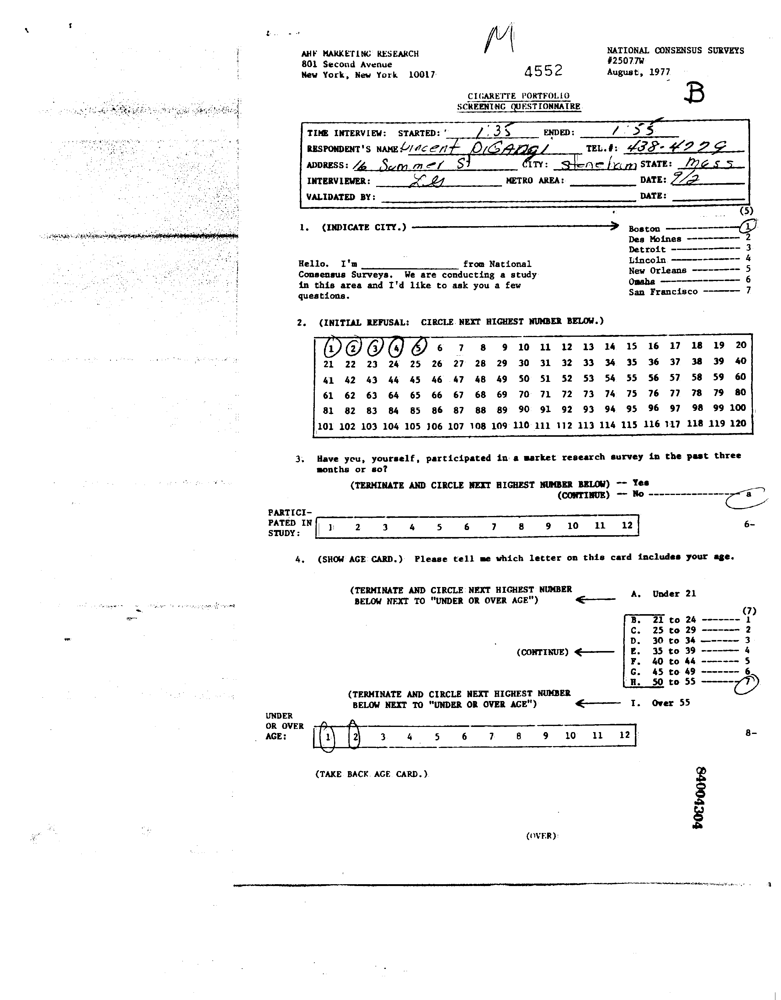 M
AHF MARKETING RESEARCH
801 Second Avenue
New York, New York 10017
4552
NATIONAL CONSENSUS SURVEYS
#25077W
August, 1977
B
CIGARETTE PORTFOLIO
SCREENING QUESTIONNAIRE
TIME INTERVIEW: STARTED: 1:35 ENDED: 1:55
RESPONDENT'S NAME: Vincent DiGangi TEL.#: 438-4229
ADDRESS: 16 Summer St CITY: Stoneham STATE: Mass
INTERVIEWER: METRO AREA: DATE: 9/2
VALIDATED BY: DATE:
(5)
1. (INDICATE CITY.)
Boston 1
Des Moines 2
Detroit 3
Lincoln 4
New Orleans 5
Omaha 6
San Francisco 7
Hello. I'm ________ from National
Consensus Surveys. We are conducting a study
in this area and I'd like to ask you a few
questions.
2. (INITIAL REFUSAL: CIRCLE NEXT HIGHEST NUMBER BELOW.)
1 2 3 4 5 6 7 8 9 10 11 12 13 14 15 16 17 18 19 20
21 22 23 24 25 26 27 28 29 30 31 32 33 34 35 36 37 38 39 40
41 42 43 44 45 46 47 48 49 50 51 52 53 54 55 56 57 58 59 60
61 62 63 64 65 66 67 68 69 70 71 72 73 74 75 76 77 78 79 80
81 82 83 84 85 86 87 88 89 90 91 92 93 94 95 96 97 98 99 100
101 102 103 104 105 106 107 108 109 110 111 112 113 114 115 116 117 118 119 120
3. Have you, yourself, participated in a market research survey in the past three
months or so?
(TERMINATE AND CIRCLE NEXT HIGHEST NUMBER BELOW) -- Yes
(CONTINUE) -- No ---------------- a
PARTICI-
PATED IN
STUDY:
1 2 3 4 5 6 7 8 9 10 11 12
6-
4. (SHOW AGE CARD.) Please tell me which letter on this card includes your age.
(TERMINATE AND CIRCLE NEXT HIGHEST NUMBER
BELOW NEXT TO "UNDER OR OVER AGE")
A. Under 21
(7)
B. 21 to 24 ------- 1
C. 25 to 29 ------- 2
D. 30 to 34 ------- 3
(CONTINUE)
E. 35 to 39 ------- 4
F. 40 to 44 ------- 5
G. 45 to 49 ------- 6
H. 50 to 55 ------- 7
(TERMINATE AND CIRCLE NEXT HIGHEST NUMBER
BELOW NEXT TO "UNDER OR OVER AGE")
I. Over 55
UNDER
OR OVER
AGE:
1 2 3 4 5 6 7 8 9 10 11 12
8-
(TAKE BACK AGE CARD.)
84004304
(OVER)